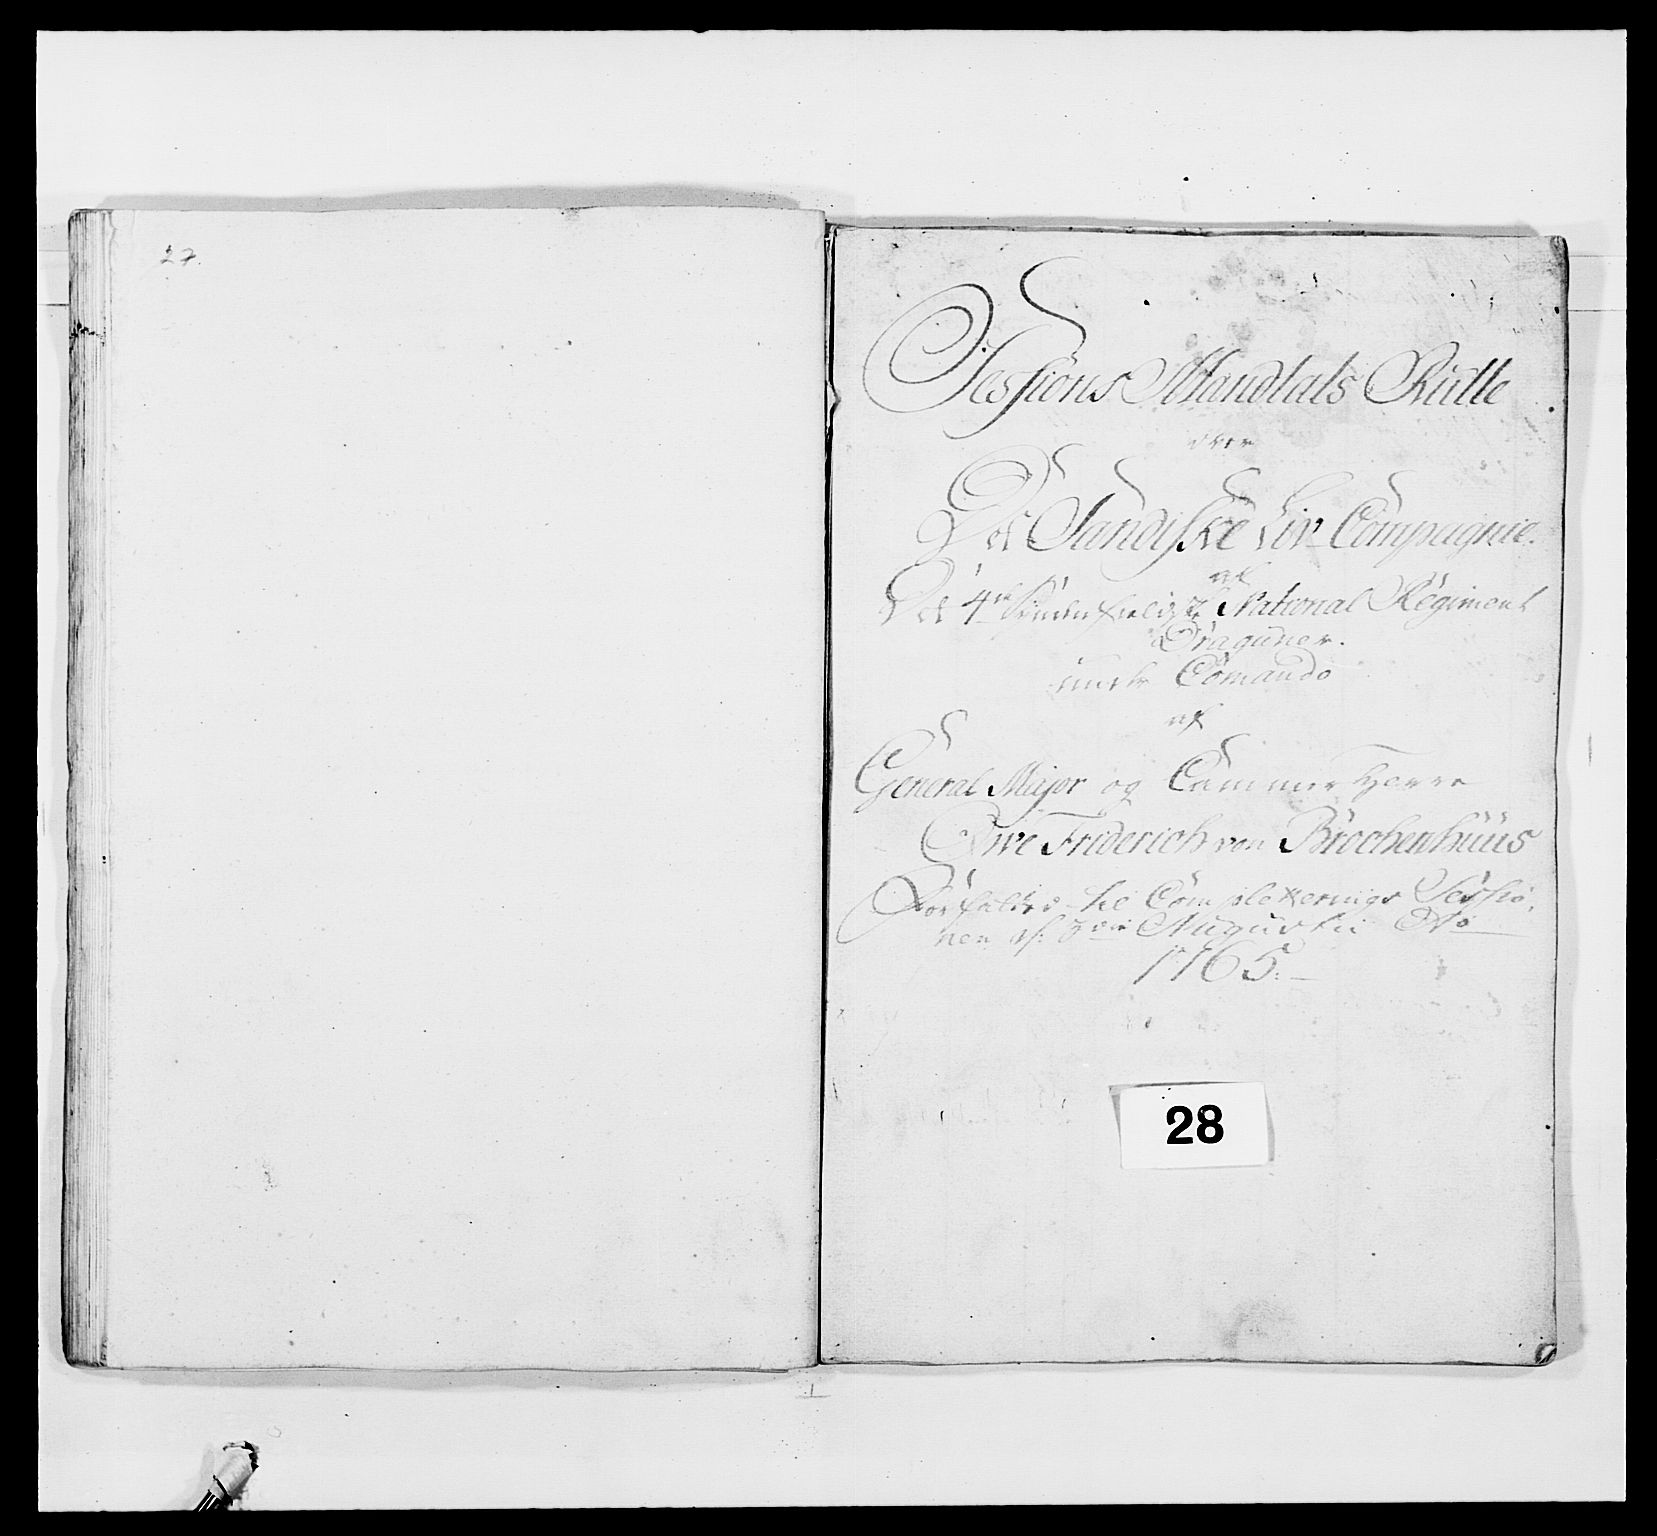 27.
Sessions Mandtals Rulle
over
Det Sandiske Liv Compagnie.
af
Det 4de Søndenfieldske National Regiment
Draguner.
under Comando
af
General Major og Cammer Herre
Owe Friderich von Brochenhüüs
Forfattet til Completterings Sessio,
nen d: Augustii Ao
1765.
28